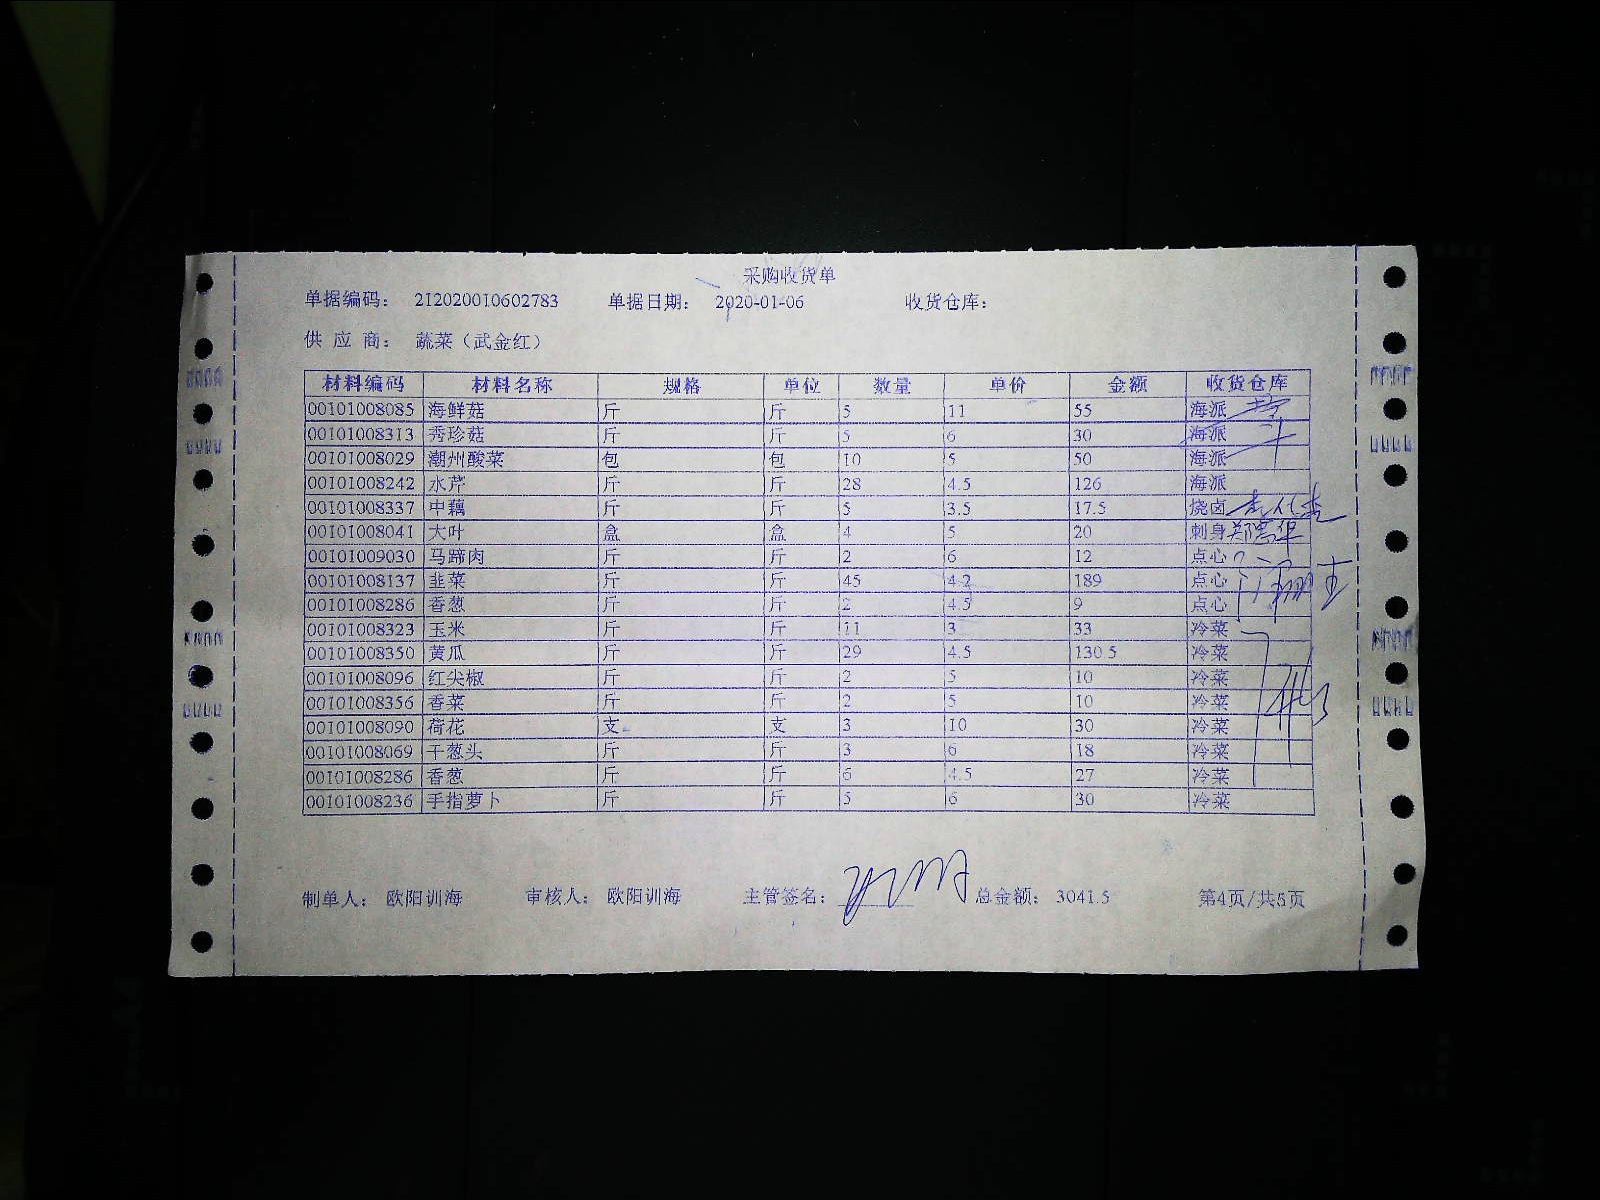 采购收货单
单据编码： 212020010602783 单据日期： 2020-01-06 收货仓库：
供 应 商： 蔬菜（武金红）
材料编码 材料名称 规格 单位 数量 单价 金额 收货仓库
00101008085 海鲜菇 斤 斤 5 11 55 海派
00101008313 秀珍菇 斤 斤 5 6 30 海派
00101008029 潮州酸菜 包 包 10 5 50 海派
00101008242 水芹 斤 斤 28 4.5 126 海派
00101008337 中藕 斤 斤 5 3.5 17.5 烧卤
00101008041 大叶 盒 盒 4 5 20 刺身
00101009030 马蹄肉 斤 斤 2 6 12 点心
00101008137 韭菜 斤 斤 45 4.2 189 点心
00101008286 香葱 斤 斤 2 4.5 9 点心
00101008323 玉米 斤 斤 11 3 33 冷菜
00101008350 黄瓜 斤 斤 29 4.5 130.5 冷菜
00101008096 红尖椒 斤 斤 2 5 10 冷菜
00101008356 香菜 斤 斤 2 5 10 冷菜
00101008090 荷花 支 支 3 10 30 冷菜
00101008069 干葱头 斤 斤 3 6 18 冷菜
00101008286 香葱 斤 斤 6 4.5 27 冷菜
00101008236 手指萝卜 斤 斤 5 6 30 冷菜
制单人： 欧阳训海 审核人： 欧阳训海 主管签名： 总金额： 3041.5 第4页/共5页